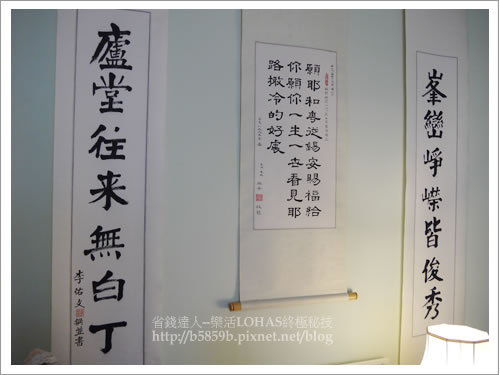 峯巒崢嶸皆俊秀
願耶和華從錫安賜福給
你願你一生一世看見耶
路撒冷的好處
廬堂往来無白丁
省錢達人--樂活LOHAS終極秘技
http://b5859b.pixnet.net/blog